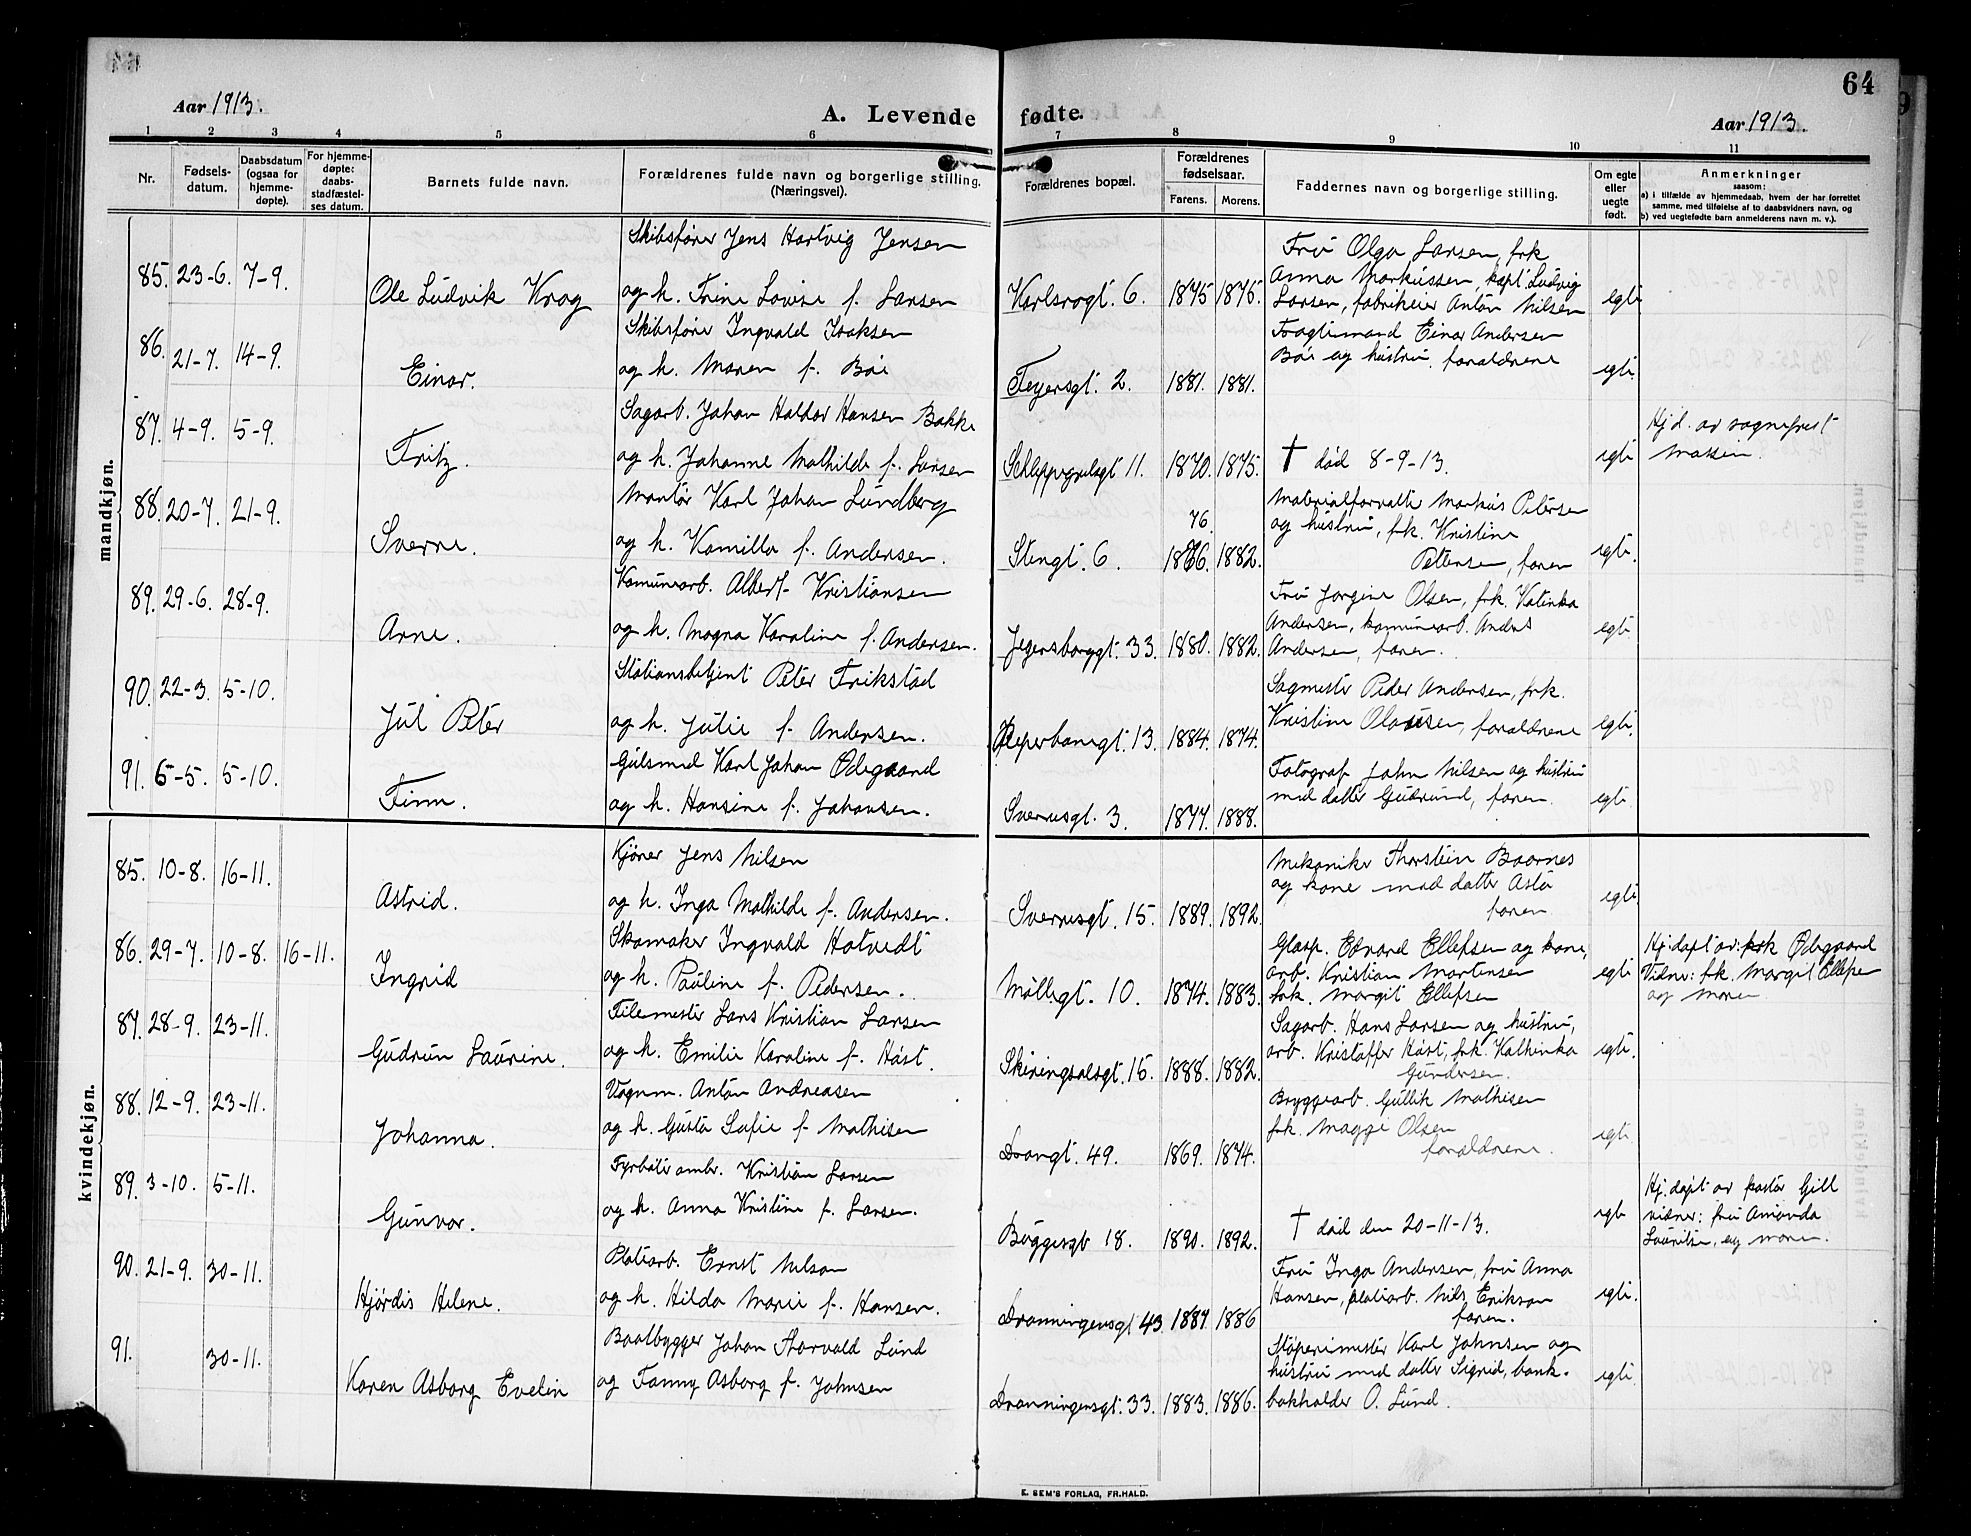 64
Aar 1913.
A. Levende fødte.
Aar 1913.
1 2 3 4 5 6 7 8 9 10 11
Nr.
Fødsels-
datum.
Daabsdatum
(ogsaa for
hjemme-
døpte).
For hjemme-
døpte:
daabs-
stadfæstel-
ses datum.
Barnets fulde navn.
Forældrenes fulde navn og borgerlige stilling.
(Næringsvei).
Forældrenes bopæl.
Forældrenes
fødselsaar.
Farens. Morens.
Faddernes navn og borgerlige stilling.
Om egte
eller
uegte
født.
Anmerkninger
saasom:
a) i tilfælde av hjemmedaab, hvem der har forrettet
samme, med tilføielse af to daabsvidners navn, og
b) ved uegtefødte barn anmelderens navn m. v.).
mandkjøn.
85. 23-6. 7-9.
Ole Ludvik Krog
Skibsfører Jens Hartvig Jensen
og h. Trine Lovise f. Larsen
Karlsrogt. 6. 1875 1875.
Fru Olga Larsen, frk
Anna Markussen, kapt. Ludvig
Larsen, fabrikeier Anton Nilsen
egte
86. 21-7. 14-9.
Einar.
Skibsfører Ingvald Isaksen
og h. Maren f. Bøe
Feyersgt. 2. 1881. 1881.
Fragtemand Einar Andersen
Bøe og hustru, forældrene
egte.
87. 4-9. 5-9.
Fritz.
Sagarb. Johan Haldor Hansen Bakke
og h. Johanne Mathilde f. Larsen
Schleppegrelsgt 11. 1870. 1875.
† død 8-9-13.
egte
Hj d. av sogneprest
88. 20-7. 21-9.
Sverre.
Montør Karl Johan Lundberg
og h. Kamilla f. Andersen.
Stengt. 6. 76 1876. 1882.
Materialforvalter Markus Petersen
og hustru, frk. Kristine
Pettersen, faren
egte.
89. 29-6. 28-9.
Arne.
Komunearb. Albert Kristiansen
og h. Magna Karoline f. Andersen.
Jegersborggt. 33. 1880. 1882.
Fru Jørgine Olsen, frk. Katinka
Andersen, komunearb. Anders
Andersen, faren.
egte
90. 22-3. 5-10.
Jul Peter
Stationsbetjent Peter Frikstad
og h. Julie f. Andersen.
Reperbanegt. 13. 1884. 1874.
Sagmester Peder Andersen, frk.
Kristine Olaussen, forældrene
egte.
91. 5-5. 5-10.
Finn.
Gulsmed Karl Johan Ødegaard
og h. Hansine f. Johansen.
Sverresgt. 3. 1877. 1888.
Fotograf John Nilsen og hustru
med datter Gudrund, faren.
egte.
kvindekjøn.
85. 10-8. 16-11.
Astrid.
Kjører Jens Nilsen
og h. Inga Mathilde f. Andersen.
Sverresgt. 15. 1889. 1892.
Mekaniker Thorstein Baarnes
og kone med datter Asta
faren
egte
86. 29-7. 10-8. 16-11.
Ingrid
Skomaker Ingvald Hotvedt
og h. Pauline f. Pedersen.
Møllegt. 10. 1874. 1883.
Glasp. Edvard Ellefsen og kone,
arb. Kristian Mortensen
frk. Margit Ellefsen
egte
Hj. døpt av: frk Ødegaard
Vidner: frk. Margit Ellefsen
og moren
87. 28-9. 23-11.
Gudrun Laurine.
Filemester Lars Kristian Larsen
og h. Emilie Karoline f. Høst.
Skiringsalsgt. 15. 1888. 1882.
Sagarb. Hans Larsen og hustru,
arb. Kristoffer Høst, frk. Kathinka
Gundersen.
egte.
88. 12-9. 23-11.
Johanna.
Vognm. Anton Andreasen
og h. Gusta Sofie f. Mathisen
Drangt. 49. 1869. 1874.
Bryggearb. Gullik Mathisen
frk. Maggi Olsen
forældrene.
egte
89. 3-10. 5-11.
Gunvor.
Fyrbøter ombr. Kristian Larsen
og h. Anna Kristine f. Larsen.
Buggesgt 18. 1890. 1892.
† død den 20-11-13.
egte
Hj. døpt av pastor Gill
vidner: fru Amanda
Lauritzen, og moren.
90. 21-9. 30-11.
Hjørdis Helene.
Platearb. Ernst Nilsen
og h. Hilda Marie f. Hansen.
Dronningensgt 43. 1887. 1886
Fru Inga Andersen, fru Anna
Hansen, platearb. Nils Erikson
faren.
egte.
91. 30-11.
Karen Asborg Evelin
Baatbygger Johan Thorvald Lund
og Fanny Asborg f. Johnsen
Dronningensgt. 33. 1883. 1886.
Støperimester Karl Johnsen og
hustru med datter Sigrid, bank-
bokholder O. Lund.
egte.
E. SEM'S FORLAG, FR.HALD.